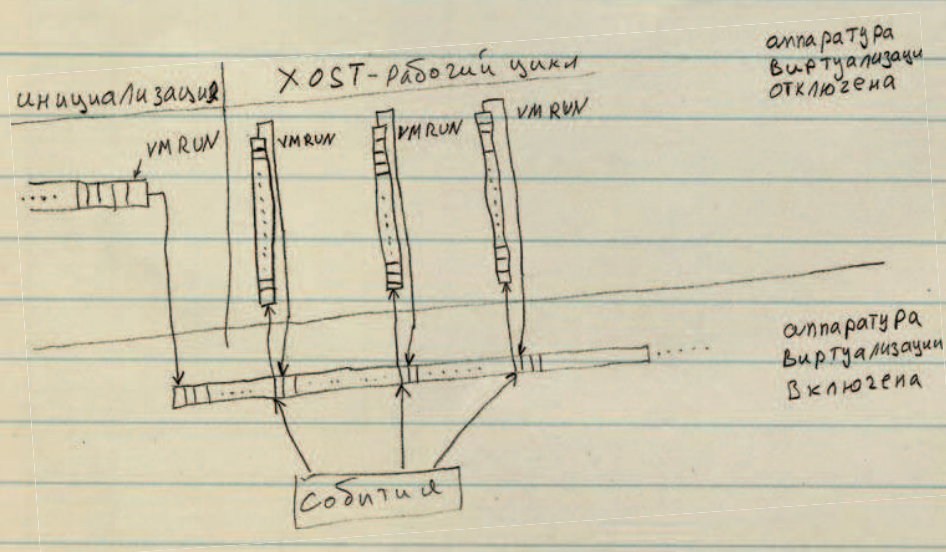 инициализация
ХОST-рабочий цикл
аппаратура
виртуализаци
отключена
VMRUN
VMRUN
VMRUN
VMRUN
аппаратура
виртуализации
включена
События